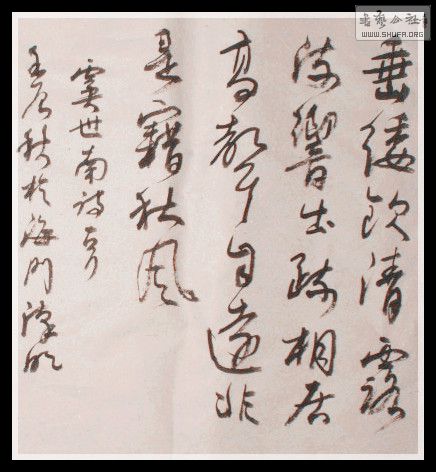 書藝公社
WWW.SHUFA.ORG
垂緌飲清露
流響出疏桐居
高聲自遠非
是籍秋風
虞世南詩
秋於海門